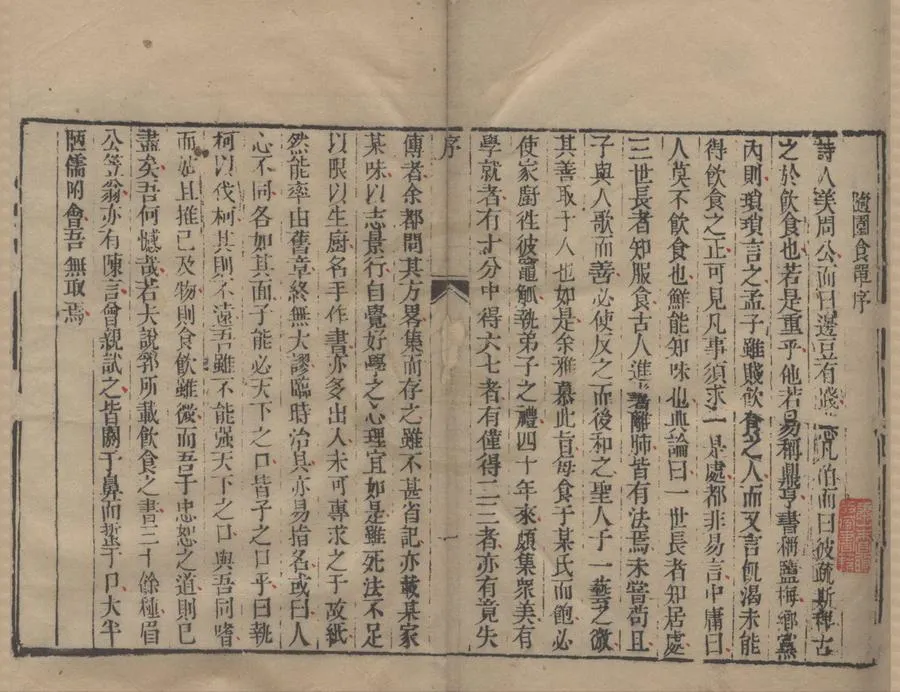 隨園食單序
詩人美周公而曰籩豆有踐惡凡伯而曰彼疏斯稗古
之於飲食也若是重乎他若易稱鼎亨書稱鹽梅鄉黨
內則瑣瑣言之孟子雖賤飲食之人而又言飢渴未能
得飲食之正可見凡事須求一是處都非易言中庸曰
人莫不飲食也鮮能知味也典論曰一世長者知居處
三世長者知服食古人進鬐離肺皆有法焉未嘗苟且
子與人歌而善必使反之而後和之聖人于一藝之微
其善取于人也如是余雅慕此旨每食于某氏而飽必
使家廚徃彼竈觚執弟子之禮四十年來頗集衆美有
學就者有十分中得六七者有僅得二三者亦有竟失
序
一
傳者余都問其方畧集而存之雖不甚省記亦載某家
某味以志景行自覺好學之心理宜如是雖死法不足
以限以生廚名手作書亦多出入未可專求之于故紙
然能率由舊章終無大謬臨時治具亦易指名或曰人
心不同各如其面子能必天下之口皆子之口乎曰執
柯以伐柯其則不遠吾雖不能強天下之口與吾同嗜
而姑且推己及物則食飲雖微而吾于忠恕之道則已
盡矣吾何憾哉若夫說郛所載飲食之書三十餘種眉
公笠翁亦有陳言曾親試之皆閼于鼻而蜇于口大半
陋儒附會吾無取焉